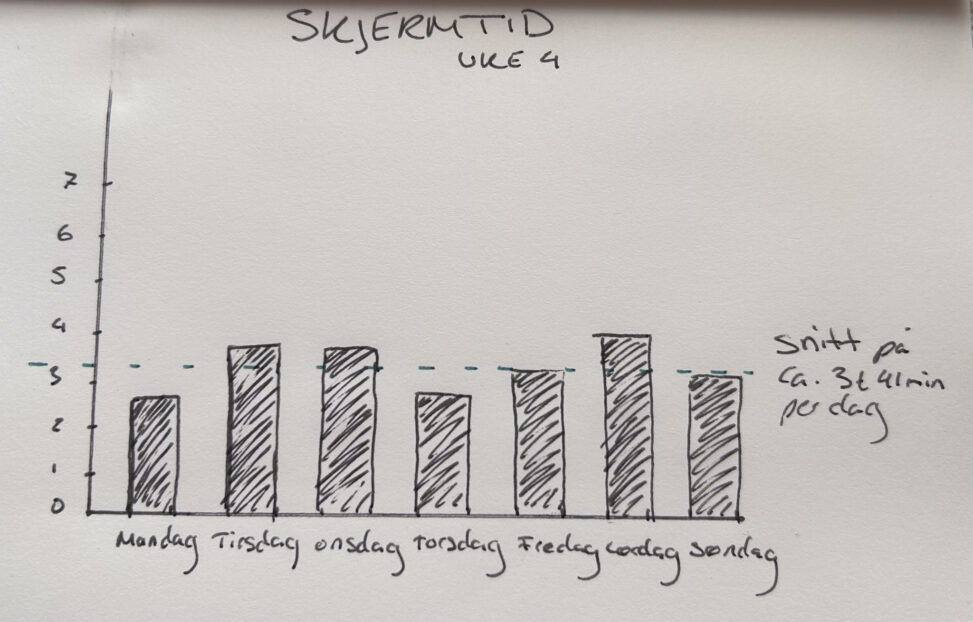 SKJERMTID
UKE 4
7
6
5
4
3
2
1
0
Snitt på
ca. 3t 41min
per dag
Mandag Tirsdag onsdag Torsdag Fredag Lørdag Søndag